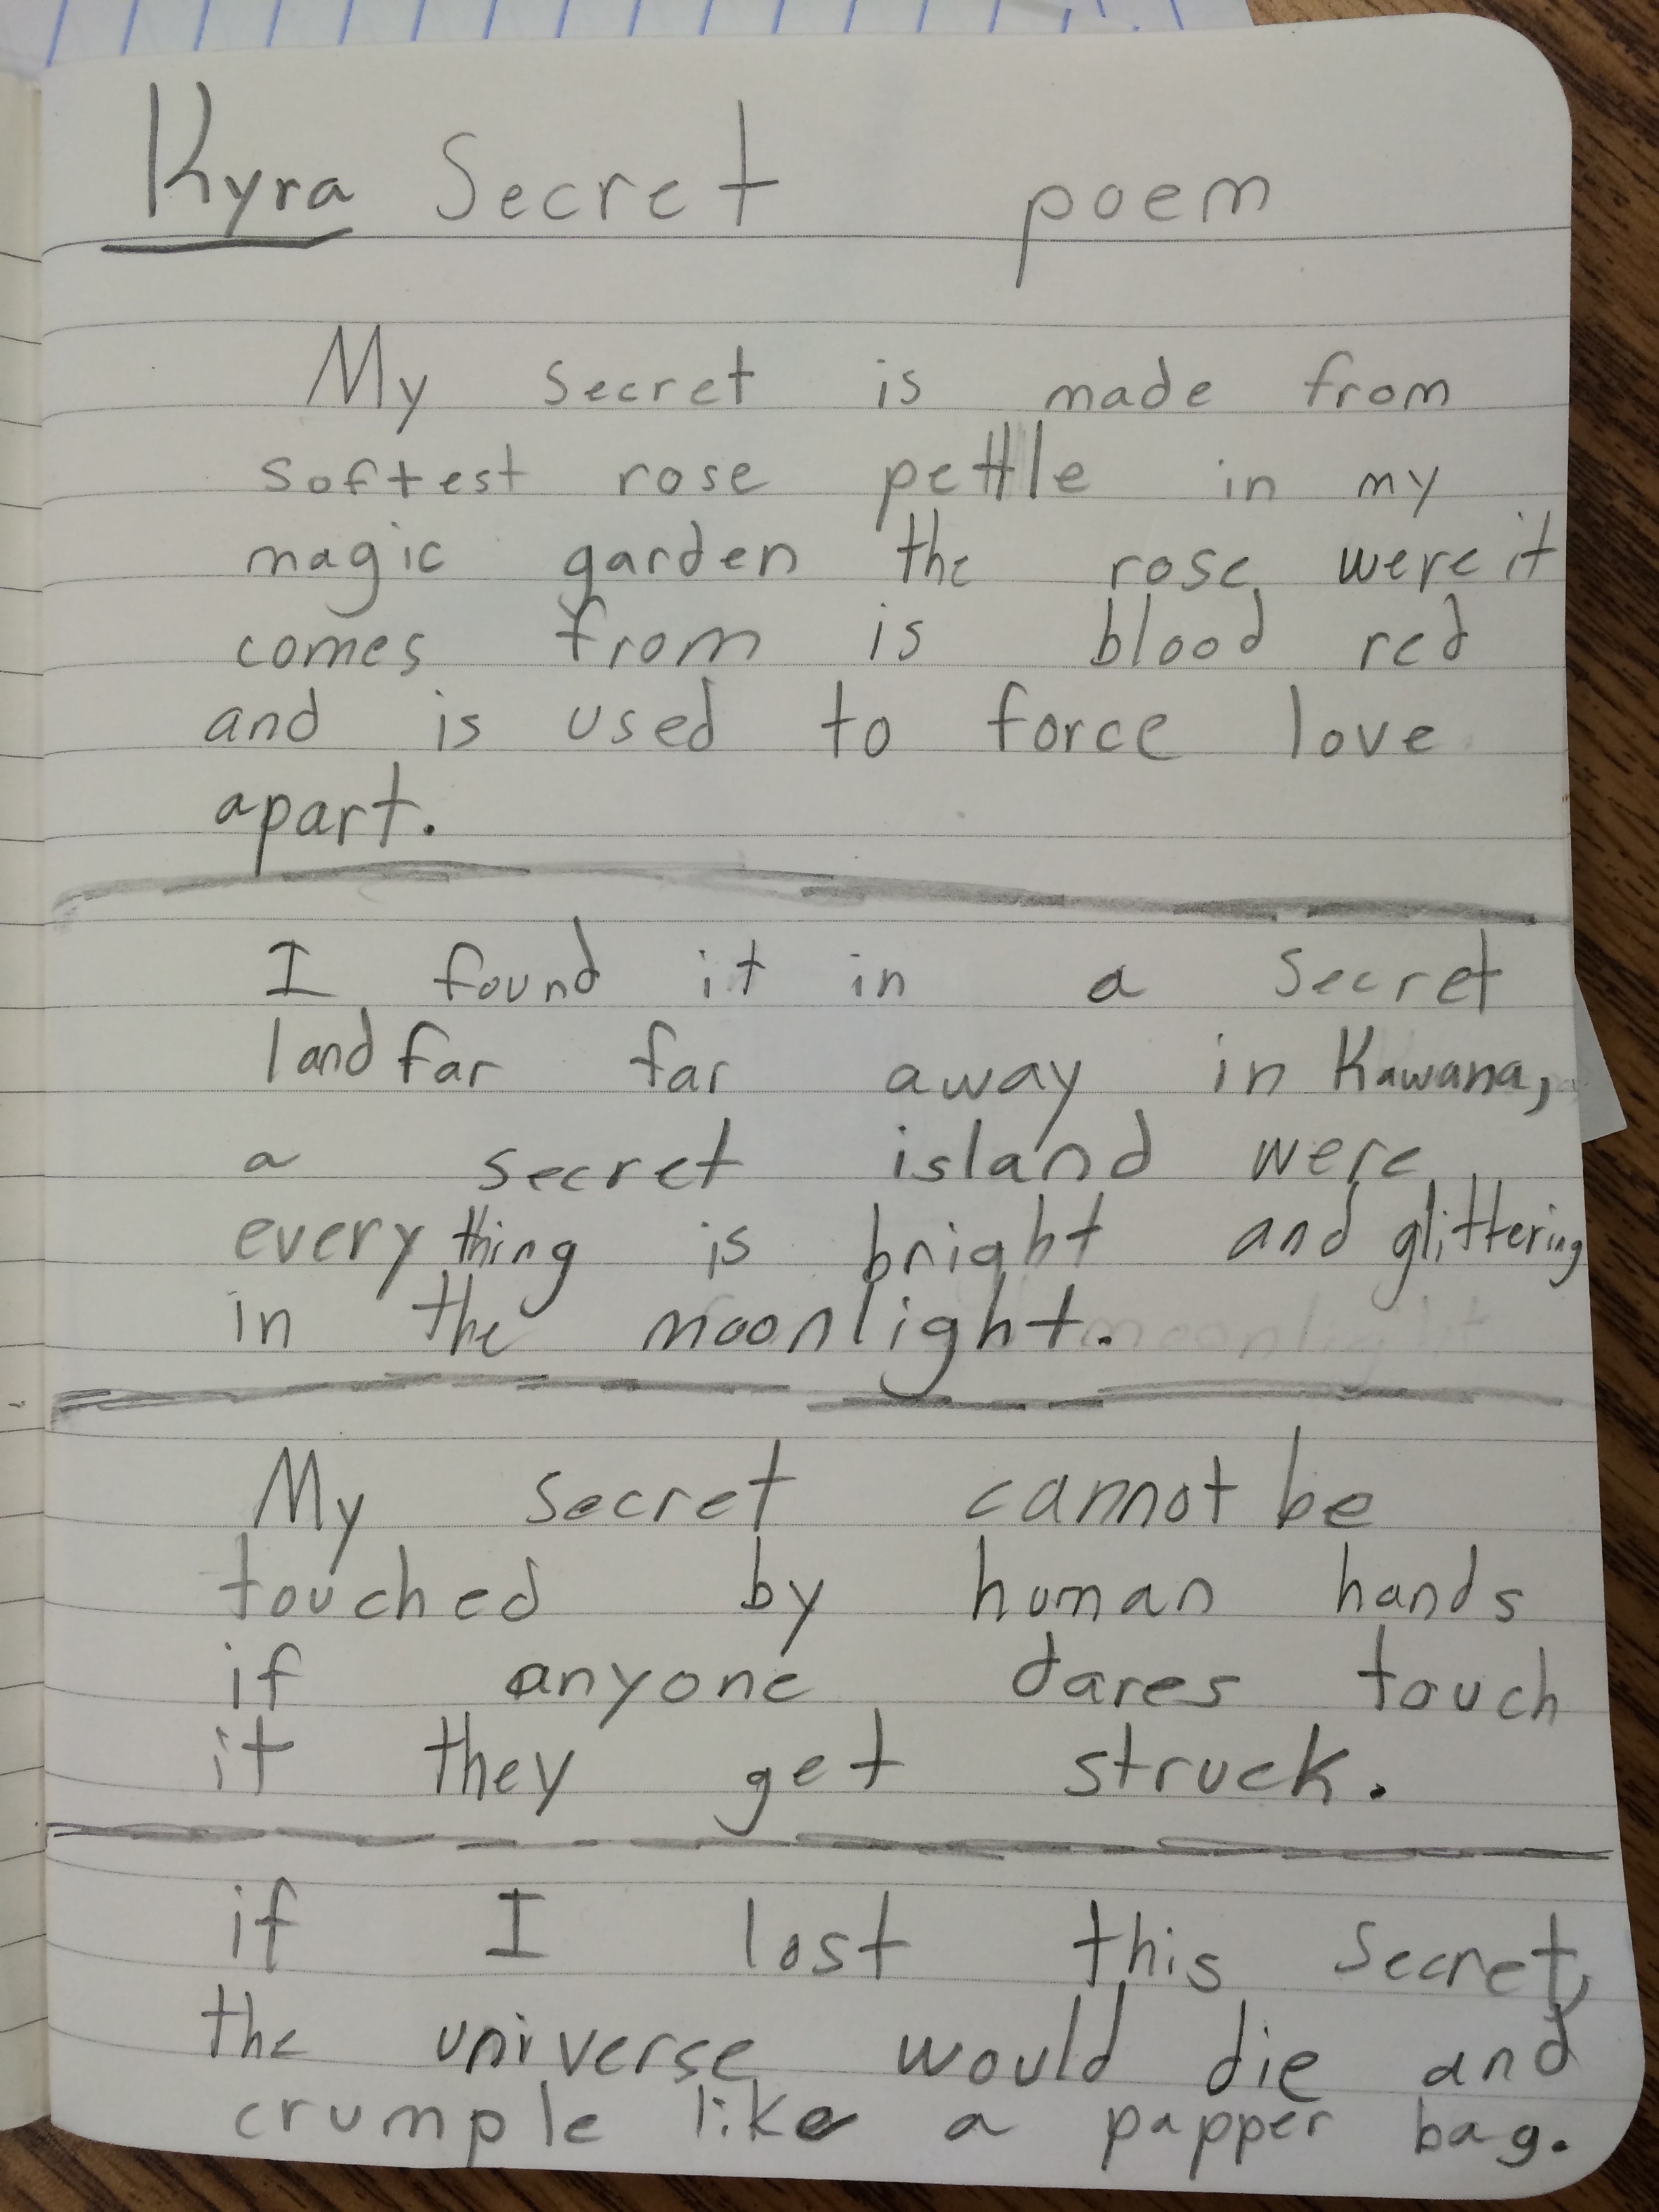 Kyra Secret poem
My secret is made from
softest rose pettle in my
magic garden the rose were it
comes from is blood red
and is used to force love
apart.
I found it in a secret
land far far away in Kawana,
a secret island were
every thing is bright and glittering
in the moonlight.
My secret cannot be
touched by human hands
if anyone dares touch
it they get struck.
if I lost this secret,
the universe would die and
crumple like a papper bag.